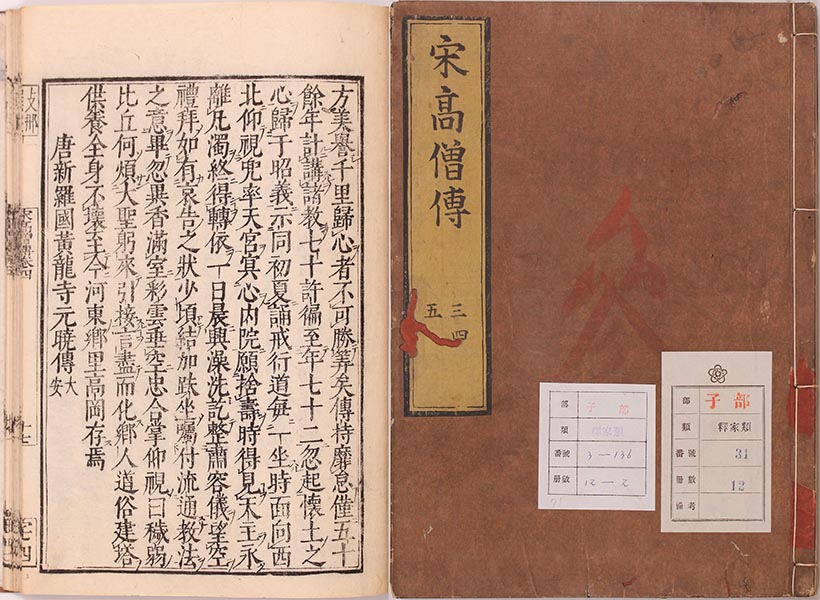 方美譽千里歸心者不可勝筭矣傳持靡怠僅五十
餘年計講諸教七十許徧至年七十二忽起懷土之
心歸于昭義示同初夏誦戒行道每一坐時面向西
北仰視兜率天宮冥心内院願捨壽時得見天主永
離凡濁終得轉依一日晨興澡洗訖整肅容儀望空
禮拜如有哀告之狀少頃結加趺坐囑付流通教法
之意畢忽異香滿室彩雲垂空忠合掌仰視曰穢弱
比丘何煩大聖躬來引接言盡而化鄉人道俗建塔
供養全身不壞至今河東鄉里高岡存焉
唐新羅國黃龍寺元曉傳 大安
宋高僧傳
三四
五
部 子部
類 釋家類
番號 3—136
册數 12—2
部 子部
類 釋家類
番號 31
册數 12
備考